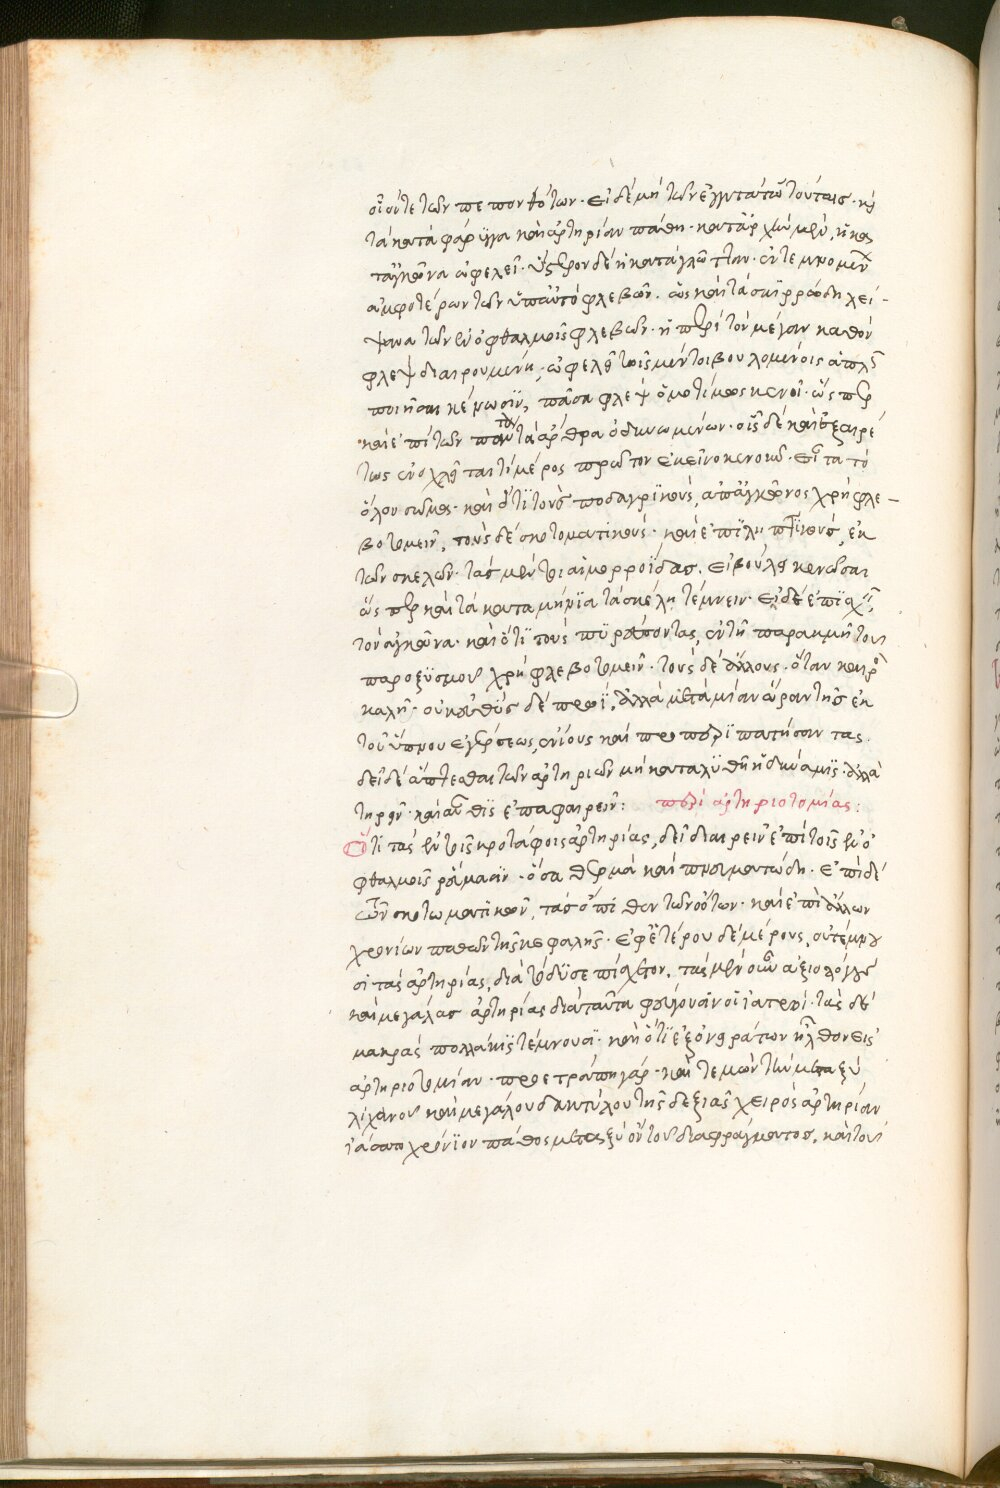 οἷον τε τῶν πεπονθότων· εἰ δὲ μὴ τῶν ἐγγυτάτω τούτοις· καὶ
τὰ κατὰ φάρϋγγα καὶ ἀρτηρίαν πάθη· κατ' ἀρχὴν μὲν, ἡ κα
τ' ἀγκῶνα ὠφελεῖ· ὕστερον δὲ ἡ κατὰ γλῶτταν· ἐντεμνομένων
ἀμφοτέρων τῶν ὑπ' αὐτὸ φλεβῶν· ὡς καὶ τὰ σκιρρώδη λεί-
ψανα τῶν ἐν ὀφθαλμοῖς φλεβῶν· ἡ περὶ τὸν μέγαν κανθὸν
φλὲψ διαιρουμένη, ὠφελεῖ τοῖς μέντοι βουλομένοις ἁπλῶς
ποιῆσαι κένωσϊν, πᾶσα φλὲψ ὁμοτίμως κενοῖ· ὥσπερ
καὶ ἐπὶ τῶν πάντα τὰ ἄρθρα ὀδυνωμένων· οἷς δὲ καὶ ἐξαιρέ
τως ἐνοχλεῖται τὶ μέρος πρῶτον ἐκεῖνο κενοῦν· εἶτα τὸ
ὅλον σῶμα· καὶ ὅτϊ τοὺς ποδαγρϊκοὺς, ἀπ' ἀγκῶνος χρὴ φλε-
βοτομεῖν, τοὺς δὲ σκοτοματικοὺς· καὶ ἐπϊληπτϊκοὺς, ἐκ
τῶν σκελῶν· τὰς μέν τοι αἱμορροΐδας· εἰ βούλει κενῶσαι
ὥσπερ καὶ τὰ καταμήνϊα τὰ σκέλη τέμνειν· εἰ δὲ ἐπϊσχεῖν,
τὸν ἀγκῶνα· καὶ ὅτϊ τοὺς πϋρέττοντας, ἐν τῇ παρακμῇ τοῦ
παροξυσμοῦ χρὴ φλεβοτομεῖν· τοὺς δὲ ἄλλους· ὅταν καιρὸς
καλῇ· οὐκ εὐθὺς δὲ πρωῒ, ἀλλὰ μετὰ μίαν ὥραν τῆς ἐκ
τοῦ ὕπνου ἐγέρσεως, ἐνίους καὶ προπερϊπατήσαντας·
δεῖ δὲ ἅπτεσθαι τῶν ἀρτηριῶν μὴ καταλϋθῇ ἡ δύναμϊς· ἀλλὰ
τηρεῖν· καὶ αὖθϊς ἐπαφαιρεῖν: περὶ ἀρτηριοτομίας:
Ὅτι τὰς ἐν τοῖς κροτάφοις ἀρτηρίας, δεῖ διαιρεῖν ἐπὶ τοῖς ἐν ὀ
φθαλμοῖς ῥεύμασϊν· ὅσα θερμὰ καὶ πνευματώδη· ἐπὶ δὲ
τῶν σκοτωματϊκῶν, τὰς ὄπϊσθεν τῶν ὤτων· καὶ ἐπὶ ἄλλων
χρονίων παθῶν τῆς κεφαλῆς· ἐφ' ἑτέρου δὲ μέρους, οὐ τέμνου
σι τὰς ἀρτηρίας, διὰ τὸ δϋσεπίσχετον, τὰς μὲν οὖν ἀξιολόγους
καὶ μεγάλας ἀρτηρίας διὰ ταῦτα φεύγουσϊν οἱ ἰατροί· τὰς δὲ
μακρὰς πολλάκϊς τέμνουσϊ· καὶ ὅτϊ ἐξ ὀνειράτων ἦλθον εἰς
ἀρτηριοτομίαν· προετράπη γὰρ· καὶ τεμὼν τὴν μεταξὺ
λιχανοῦ καὶ μεγάλου δακτύλου τῆς δεξιᾶς χειρὸς ἀρτηρίαν
ἰάσατο χρόνϊον πάθος μεταξὺ ὂν τοῦ διαφράγματος, καὶ τοῦ